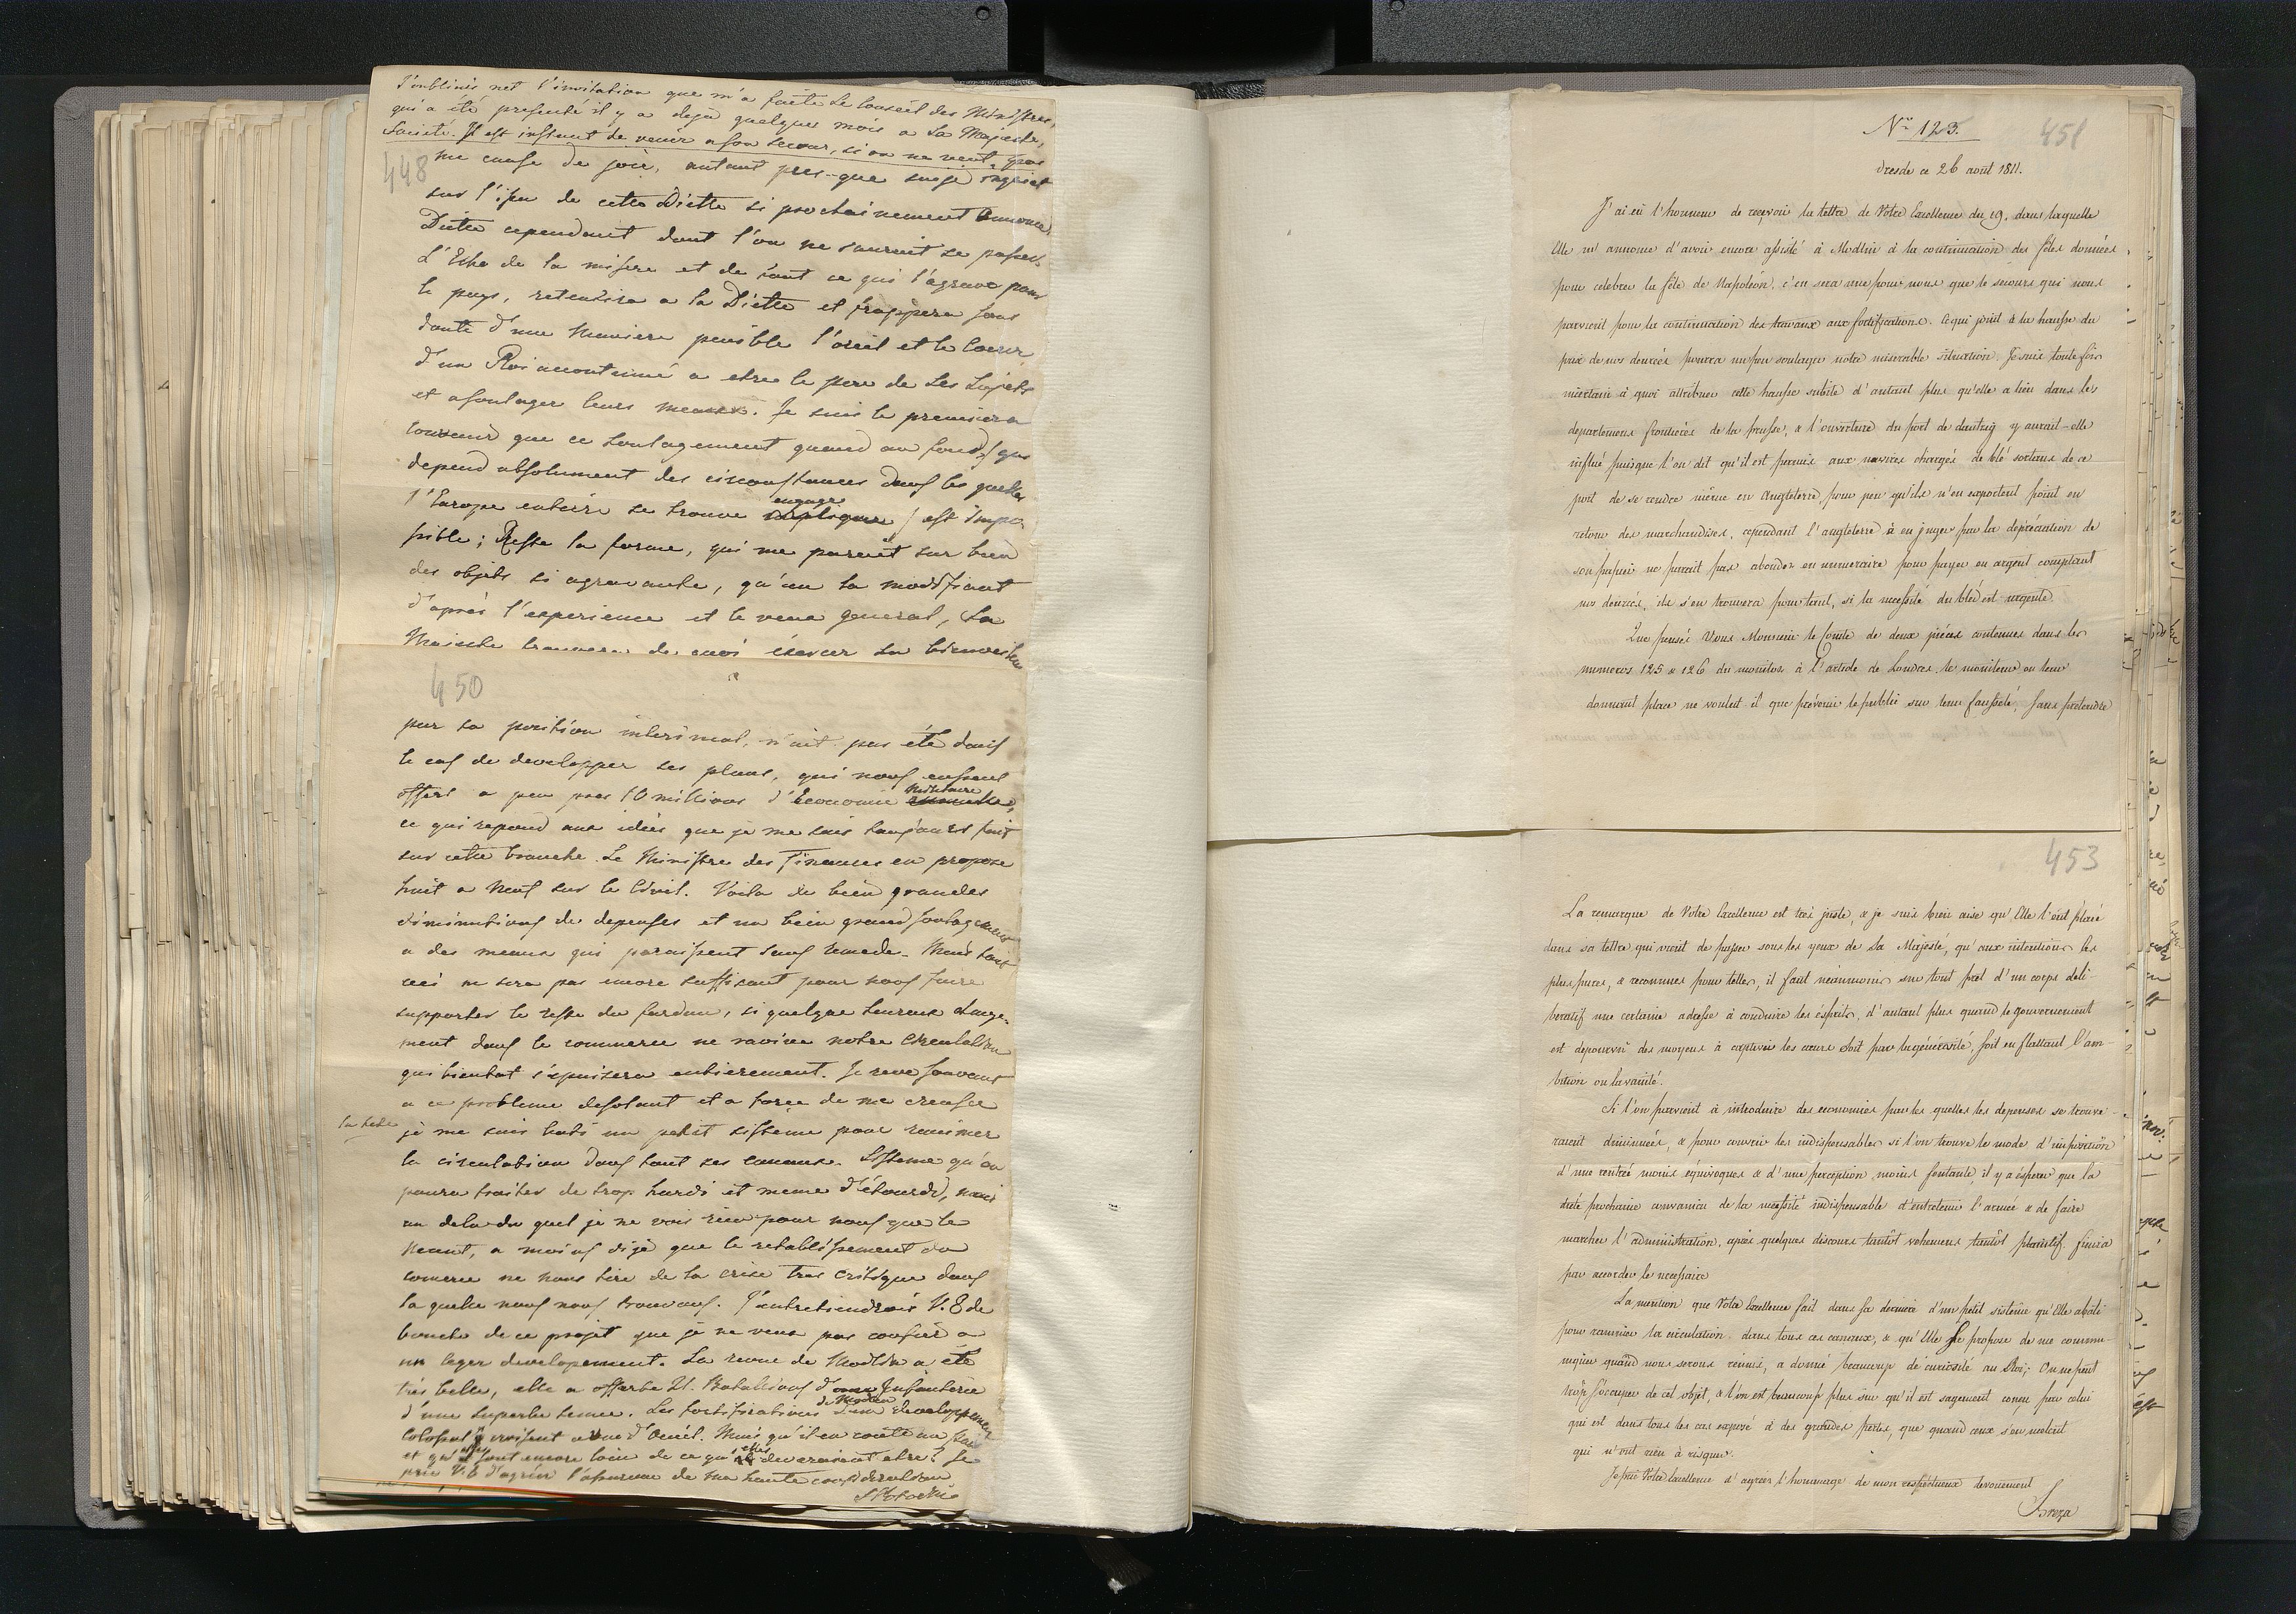 J'oubliais net l'invitation que m'a faite le Conseil des Ministres,
qui a été presenté il y a deja quelques mois a Sa Majesté,
Societé. Il est instant de venir a son secour, si on ne veut pas
448
me cause de joie, autant presque suisje inquiet
sur l'issu de cette Diette si prochainement annoncé,
Diette cependant dont l'on ne sauroit se passer.
L'Echo de la misere et de tout ce qui l'agrave pour
le pays, retentira a la Diette et frappera sans
doute d'une maniere penible l'oreil et le Coeur
d'un Roi accoutumé a etre le pere de ses Sujets
et a soulager leurs meaux. Je suis le premier a
convenir que ce soulagement quand au fond, / qui
depend absolument des circonstances dans les quelles
l'Europe entiere se trouve engagée / est impos
sible; Reste la forme, qui me paroit sur bien
des objets si agravante, qu'en la modifiant
d'aprés l'experience et le voeu general, Sa
Majesté trouvera de quoi éxercer sa bienveillan
450
par sa position interimal, n'ait pas été dans
le cas de developper ses plans, qui nous eussent
offert a peu pres 10 millions d'Economie Militaire,
ce qui repond aux idées que je me suis toujours fait
sur cette branche. Le Ministre des Finances en propose
huit a neuf sur le Civil. Voila de bien grandes
diminutions de depenses et un bien grand soulagement
a des meaux qui paraissent sans remede. Mais tout
ceci ne sera pas encore suffisant pour nous faire
supporter le reste du fardeau, si quelque heureux change-
ment dans le commerce ne ravive notre Circulation
qui bientot s'epuisera entierement. Je reve souvent
a ce probleme desolant et a force de me creuser
la tete je me suis bati un petit sisteme pour ranimer
la circulation dans tout ses canaux. Sisteme qu'on
poura traiter de trop hardi et meme d'étourdi, mais
au dela du quel je ne vois rien pour nous que le
neant, a moins dije que le retablissement du
comerce ne nous tire de la crise tres critique dans
la quelle nous nous trouvons. J'entretiendrais V. E. de
bouche de ce projet que je ne veux pas confier a
un leger developement. La revue de Modlin a été
très belle, elle a offerte 21. Bataillons d'Infanterie
d'une superbe tenue. Les fortifications de Modlin d'un developpement
Colossal croissent a vue d'oeuil. Mais qu'il en coute au pais
et qu'elles sont encore loin de ce qu'elles devroient etre! Je
prie V. E. d'agréer l'assurance de ma haute consideration
SPotocki
Nro 123. 451
Dresde ce 26 août 1811.
J'ai eû l'honneur de recevoir la lettre de Votre Excellence du 19, dans laquelle
Elle m'annonce d'avoir encore assisté à Modlin à la continuation des fêtes données
pour celebrer la fête de Napoléon, c'en sera une pour nous que le secours qui nous
parvient pour la continuation des travaux aux fortifications. Ce qui joint à la hausse du
prix de nos denrées pourra un peu soulager notre miserable situation. Je suis toute fois
incertain à quoi attribuer cette hausse subite d'autant plus qu'elle a lieu dans les
departemens frontieres de la prusse, & l'ouverture du port de dantzig y aurait-elle
influé puisque l'on dit qu'il est permis aux navires chargés de blé sortans de ce
port de se rendre même en Angleterre, pour peu qu'ils n'en exportent point en
retour des marchandises, cependant l'angleterre à en juger par la dépréciation de
son papier ne parait pas abonder en numeraire pour payer en argent comptant
nos denrées, ils s'en trouvera pourtant, si la necessité du bled est urgente.
Que pensés Vous Monsieur le Comte de deux piéces contenues dans les
numeros 125 & 126 du moniteur à l'article de Londres. le moniteur en leur
donnant place ne voulut-il que prévenir le public sur leur fausseté, sans pretendre
453
La remarque de Votre Excellence est très juste, & je suis bien aise qu'Elle l'ait placé
dans sa lettre qui vient de passer sous les yeux de Sa Majesté, qu'aux intentions les
plus pures, & reconnues pour telles, il faut néanmoins sur tout près d'un corps deli-
beratif une certaine adresse à conduire les ésprits, d'autant plus quand le gouvernement
est depourvû des moyens à captiver les cœurs soit par la générosité, soit en flattant l'am-
bition ou la vanité.
Si l'on parvient à introduire des economies par les quelles les depenses se trouve-
raient diminuées, & pour couvrir les indispensables si l'on trouve le mode d'imposition
d'une rentrée moins équivoque & d'une perception moins foulante, il y a à esperer que la
diète prochaine convaincu de la necessité indispensable d'entretenir l'armée & de faire
marcher l'administration, après quelques discours tantôt vehemens tantôt plaintifs finira
par accorder le necessaire
La mention que Votre Excellence fait dans sa derniere d'un petit sistême qu'Elle a bâti
pour ranimer la circulation dans tous ces canaux, & qu'Elle se propose de me commu-
niquer quand nous serons réunis, a donné beaucoup de curiosité au Roi; On ne peut
trop s'occuper de cet objet, & l'on est beaucoup plus sûr qu'il est sagement conçu par celui
qui est dans tous les cas exposé à des grandes pertes, que quand ceux s'en melent
qui n'ont rien à risquer.
Je prie Votre Excellence d'agréer l'hommage de mon respectueux devouement
Breza